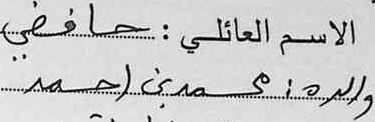 الاسم العائلي : حافضي
والده : محمد بن احمد